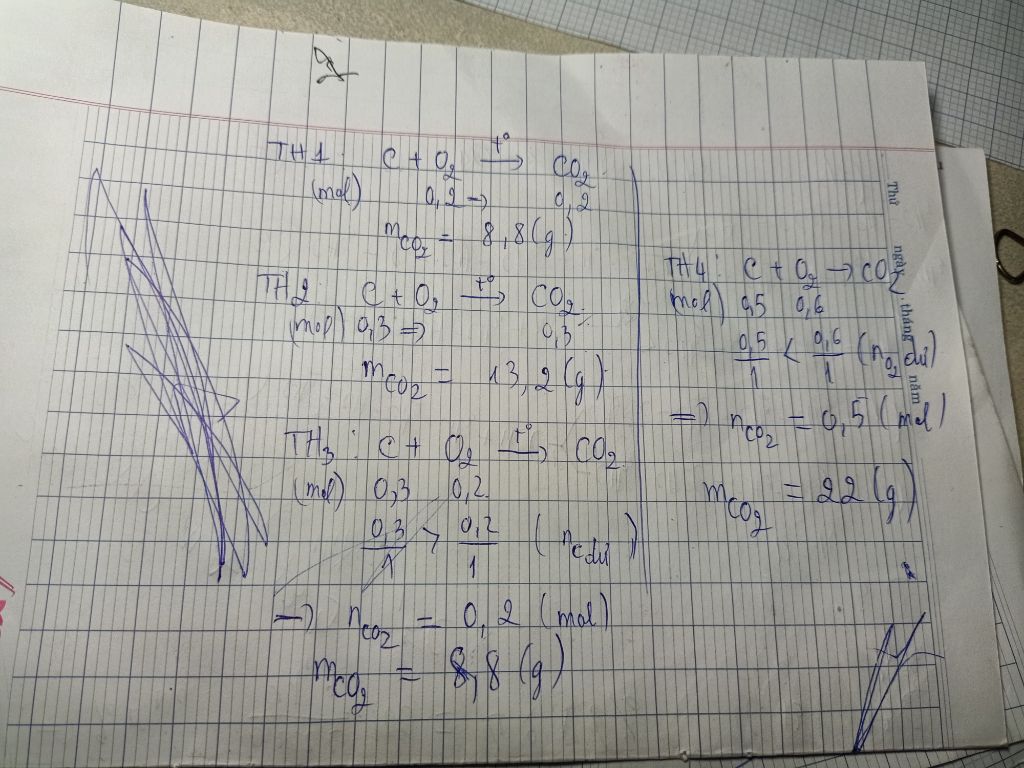 TH1: C + O₂ —t°→ CO₂
(mol) 0,2 → 0,2
mCO₂ = 8,8 (g)
TH2: C + O₂ —t°→ CO₂
(mol) 0,3 ⇒ 0,3
mCO₂ = 13,2 (g)
TH3: C + O₂ —t°→ CO₂
(mol) 0,3 0,2
0,3/1 > 0,2/1 (nC dư)
=> nCO₂ = 0,2 (mol)
mCO₂ = 8,8 (g)
TH4: C + O₂ → CO₂
(mol) 0,5 0,6
0,5/1 < 0,6/1 (nO₂ dư)
=> nCO₂ = 0,5 (mol)
mCO₂ = 22 (g)
Thứ ngày tháng năm